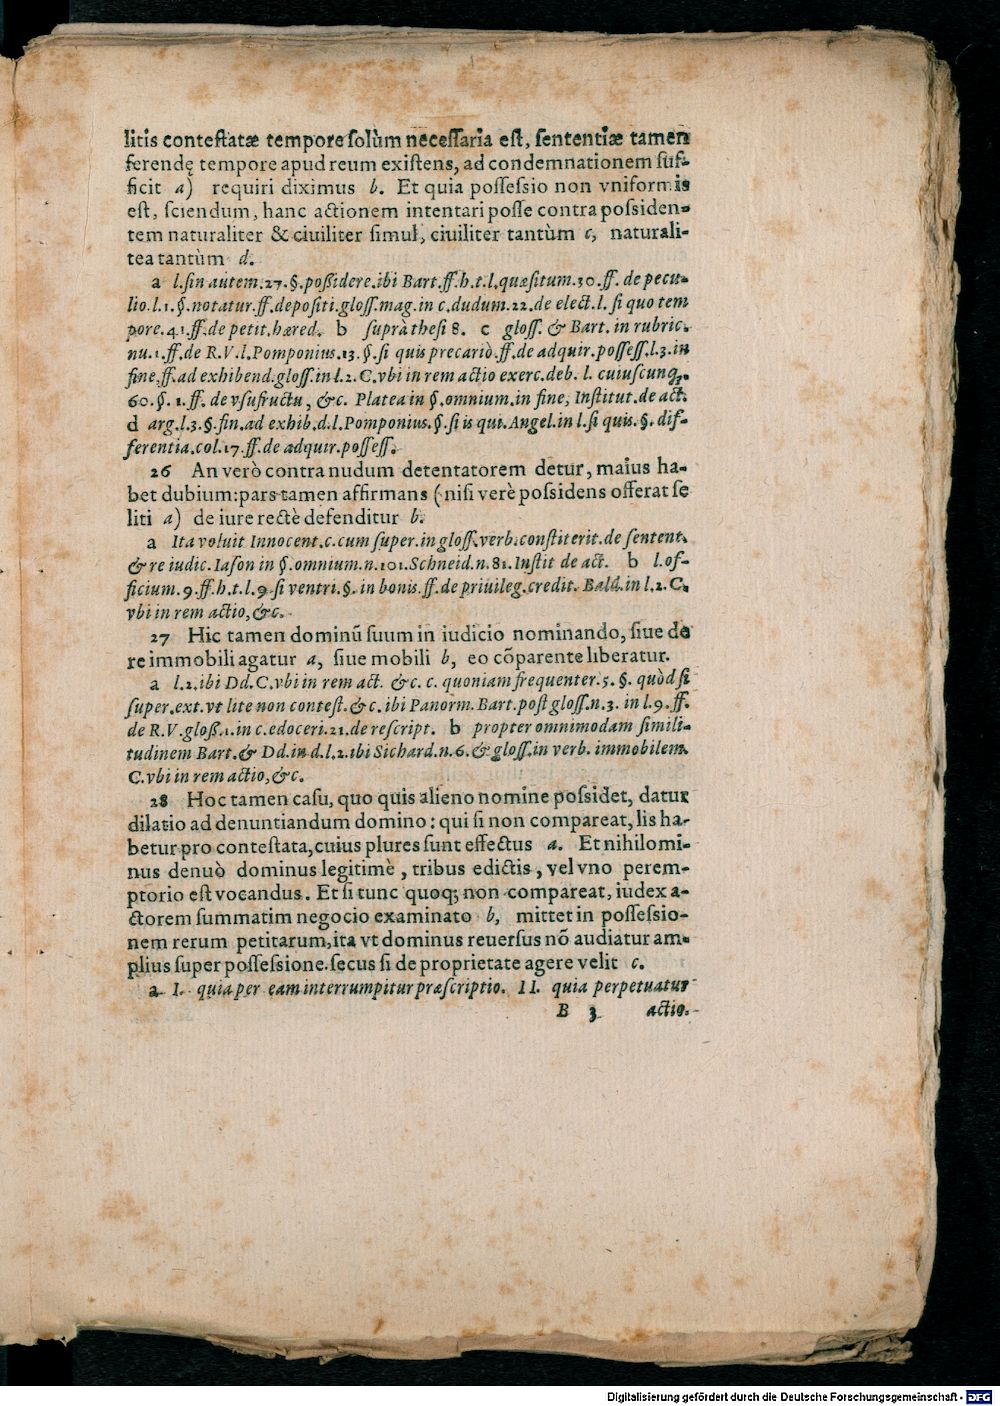 litis contestatæ tempore solùm necessaria est, sententiæ tamen
ferendę tempore apud reum existens, ad condemnationem suf-
ficit a) requiri diximus b. Et quia possessio non vniformis
est, sciendum, hanc actionem intentari posse contra possiden-
tem naturaliter & ciuiliter simul, ciuiliter tantùm c, naturali-
tea tantùm d.
a l.sin autem.27.§.possidere.ibi Bart.ff.h.t.l.quæsitum.30.ff. de pecu-
lio.l.1.§.notatur.ff.depositi.gloss.mag.in c.dudum.22.de elect.l.si quo tem
pore.41.ff.de petit.hæred. b suprà thesi 8. c gloss. & Bart. in rubric.
nu.1.ff.de R.V.l.Pomponius.13.§.si quis precariò.ff.de adquir.possess.l.3.in
fine.ff.ad exhibend.gloss.in l.2.C.vbi in rem actio exerc.deb. l. cuiuscunq;.
60.§.1.ff. de vsufructu, &c. Platea in §.omnium.in fine, Institut.de act.
d arg.l.3.§.fin.ad exhib.d.l.Pomponius.§.si is qui.Angel.in l.si quis.§.dif-
ferentia.col.17.ff.de adquir.possess.
26 An verò contra nudum detentatorem detur, maius ha-
bet dubium: pars tamen affirmans (nisi verè possidens offerat se
liti a) de iure rectè defenditur b.
a Ita voluit Innocent.c.cum super.in gloss.verb.constiterit.de sentent.
& re iudic.Iason in §.omnium.n.101.Schneid.n.81.Instit de act. b l.of-
ficium.9.ff.h.t.l.9.si ventri.§.in bonis.ff.de priuileg.credit. Bald.in l.2.C.
vbi in rem actio,&c.
27 Hic tamen dominũ suum in iudicio nominando, siue de
re immobili agatur a, siue mobili b, eo cõparente liberatur.
a l.2.ibi Dd.C.vbi in rem act. &c. c. quoniam frequenter.5.§. quòd si
super.ext.vt lite non contest.&c.ibi Panorm.Bart.post gloss.n.3.in l.9.ff.
de R.V.gloß.1.in c.edoceri.21.de rescript. b propter omnimodam simili-
tudinem Bart.& Dd.in d.l.2.ibi Sichard.n.6.& gloss.in verb. immobilem.
C.vbi in rem actio,&c.
28 Hoc tamen casu, quo quis alieno nomine possidet, datur
dilatio ad denuntiandum domino: qui si non compareat, lis ha-
betur pro contestata, cuius plures sunt effectus a. Et nihilomi-
nus denuò dominus legitimè, tribus edictis, vel vno perem-
ptorio est vocandus. Et si tunc quoq; non compareat, iudex a-
ctorem summatim negocio examinato b, mittet in possessio-
nem rerum petitarum, ita vt dominus reuersus nõ audiatur am-
plius super possessione. secus si de proprietate agere velit c.
a I. quia per eam interrumpitur præscriptio. II. quia perpetuatur
B 3 actio.
Digitalisierung gefördert durch die Deutsche Forschungsgemeinschaft - DFG